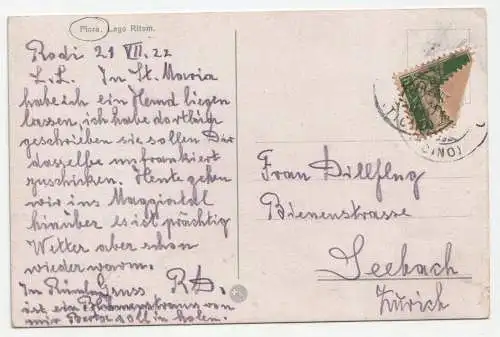 Piora. Lago Ritom.
Rodi 21 VII. 22
L. L. In St. Maria
habe ich ein Hemd liegen
lassen, ich habe dorthin
geschrieben sie sollen Dir
dasselbe unfrankiert
zuschicken. Heute gehen
wir ins Maggiatal
hinüber es ist prächtig
Wetter aber schon
wieder warm.
Gruss
ist ein Blumenstrauss von
mir Bertha soll in holen.
Frau Dillflug
Bienenstrasse
Seebach
Zürich